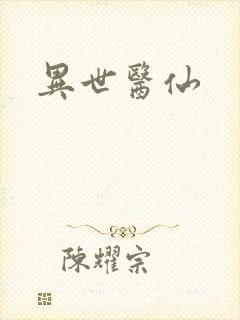 異世醫仙
陳耀宗